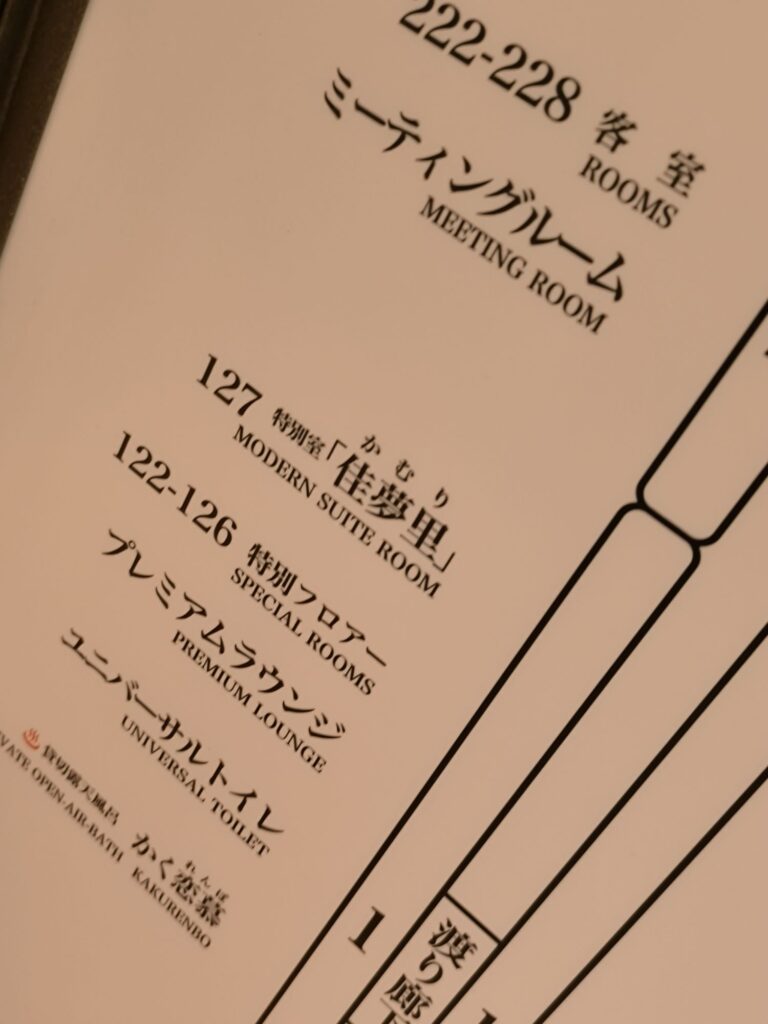 222-228 客室
ROOMS
ミーティングルーム
MEETING ROOM
かむり
127 特別室「佳夢里」
MODERN SUITE ROOM
122-126 特別フロアー
SPECIAL ROOMS
プレミアムラウンジ
PREMIUM LOUNGE
ユニバーサルトイレ
UNIVERSAL TOILET
れんぼ
♨ 貸切露天風呂 かく恋慕
OPEN-AIR-BATH KAKURENBO
1
渡り廊